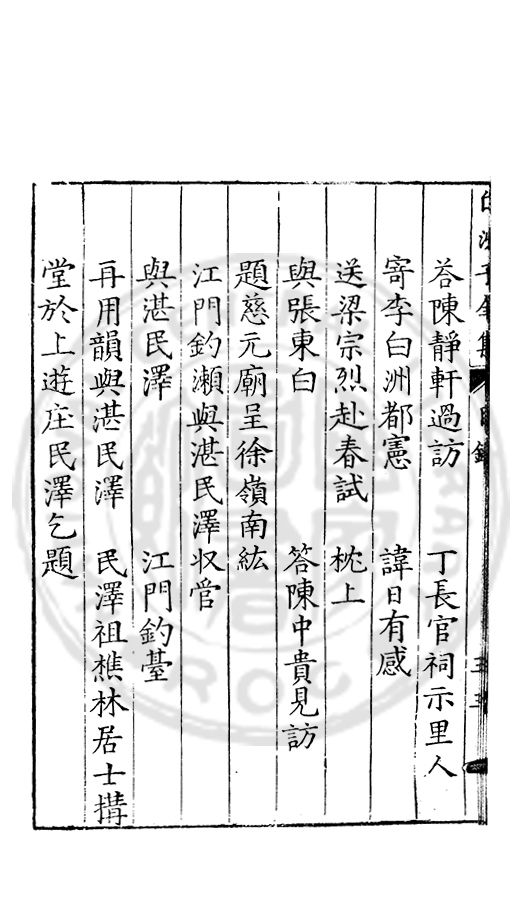 荅陳靜軒過訪　丁長官祠示里人
寄李白洲都憲　諱日有感
送梁宗烈赴春試　枕上
與張東白　答陳中貴見訪
題慈元廟呈徐嶺南紘
江門釣瀬與湛民澤収管
與湛民澤　江門釣臺
再用韻與湛民澤　民澤祖樵林居士搆
堂於上遊庄民澤乞題